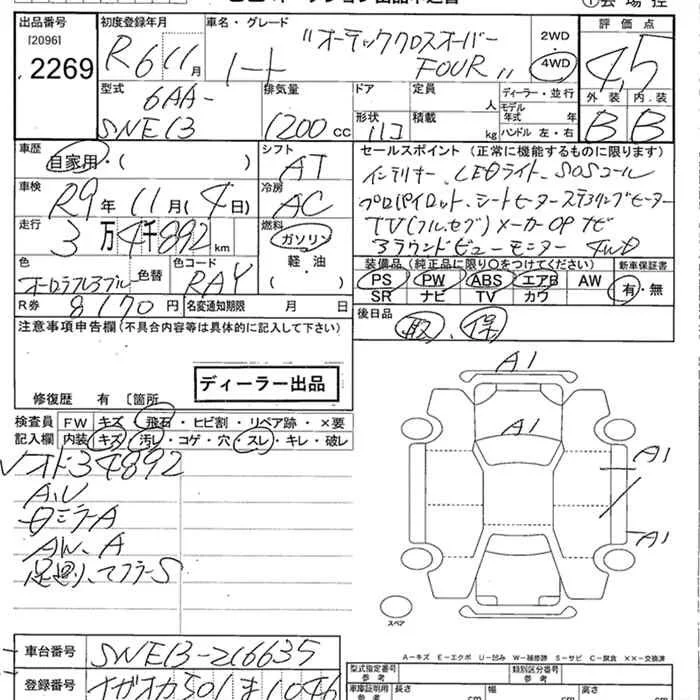 出品番号
[2096]
2269
初度登録年月
R6 11月
車名・グレード
ノート
"オーテッククロスオーバー
FOUR"
2WD
4WD
評価点
4.5
外装 内装
B B
型式
6AA-
SNE13
排気量
1200cc
ドア
形状
定員
人
積載
kg
ディーラー・並行
モデル
年式 年
ハンドル 左・右
車歴
自家用・( )
シフト
AT
車検
R9年 11月(4日)
冷房
AC
走行
3万4千892km
燃料
ガソリン
軽・油
( )
色
オーロラフレアブルー
色替
色コード
RAY
R券
8170円
名変通知期限 月 日
セールスポイント(正常に機能するものに限ります)
インテリキー、LEDライト、SOSコール
プロパイロット、シートヒーター ステアリングヒーター
TV(フルセグ) メーカーOPナビ
アラウンドビューモニター 4WD
装備品(純正品に限り○をつけてください)
PS PW ABS エアB AW
SR ナビ TV カワ
新車保証書
有・無
後日品
取、保
注意事項申告欄(不具合内容等は具体的に記入して下さい)
ディーラー出品
修復歴 有 〔箇所
検査員
記入欄
FW キズ・飛石・ヒビ割・リペア跡・×要
内装 キズ・汚レ・コゲ・穴・スレ・キレ・破レ
34892
A.U
ミラーA
AW、A
足廻り、マフラーS
A1
A1
A1
A1
スペア
A-キズ E-エクボ U-凹み W-補修跡 S-サビ C-腐食 XX-交換済
車台番号
SNE13-216635
登録番号
501 ま 1046
型式指定番号
参考
類別区分番号
参考
車庫証明用
参考
長さ
cm
幅
cm
高さ
cm